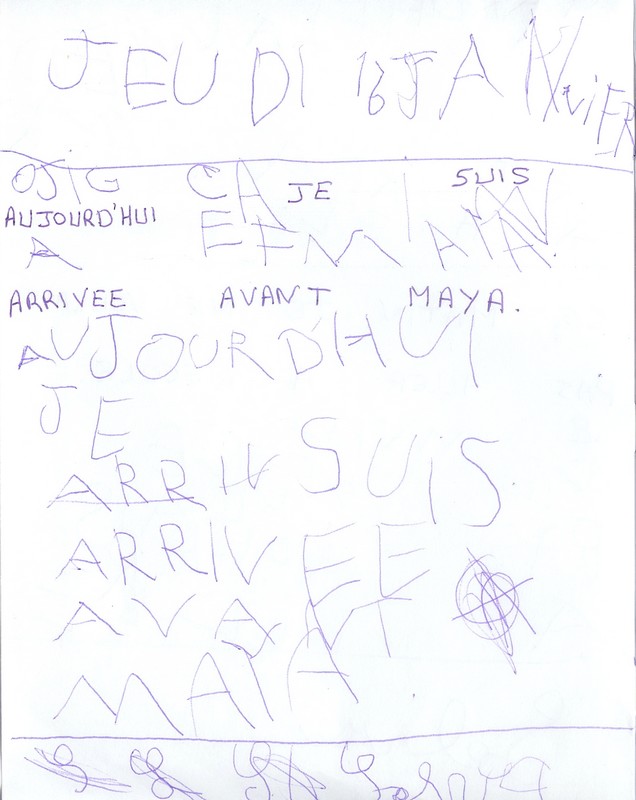 JEUDI 16 JANViER
JE SUIS
AUJOURD'HUI
A
ARRIVEE AVANT MAYA.
AUJOURD'HUI
JE
SUiS
ARRIVEE
AVANT
MAYA